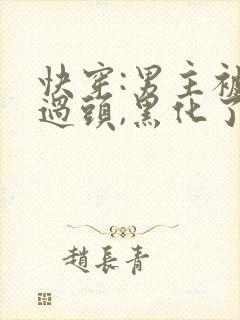 快穿:男主被
過頭,黑化了
趙長青